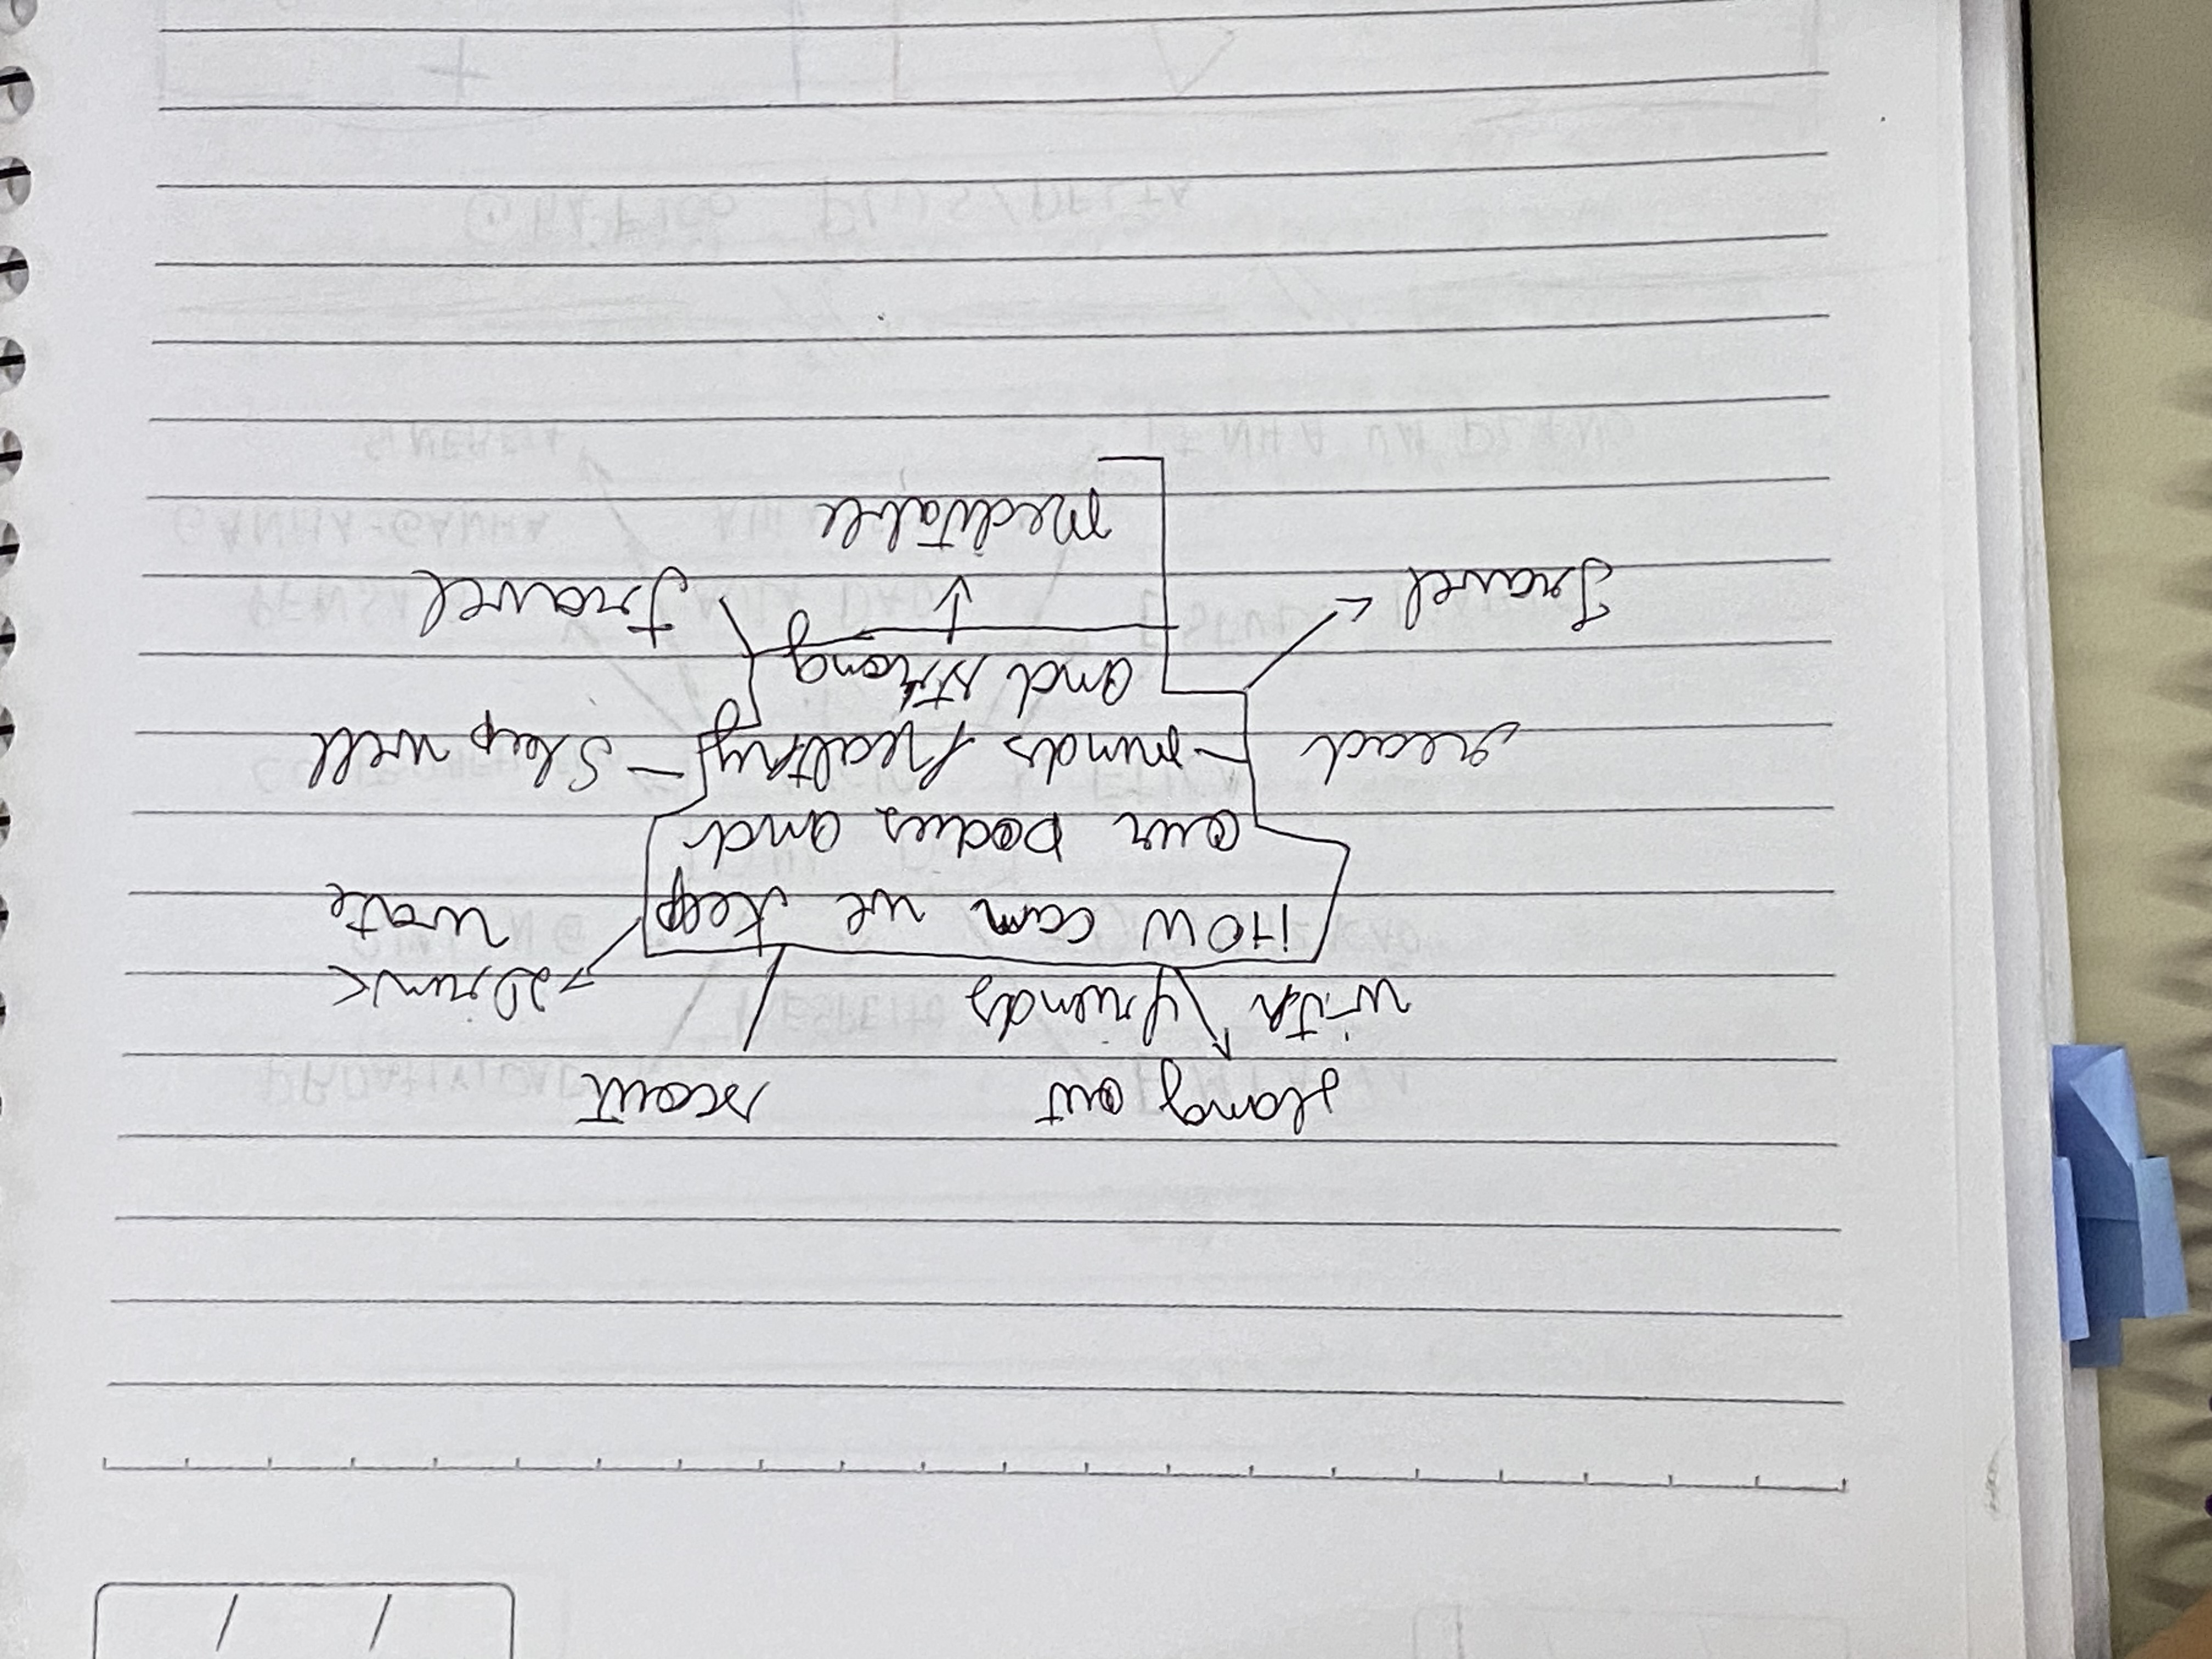 Hang out
scout
with friends
Drink
wate
HOW can we keep
our bodies and
read
minds healthy
Sleep well
and strong
Travel
travel
Meditate